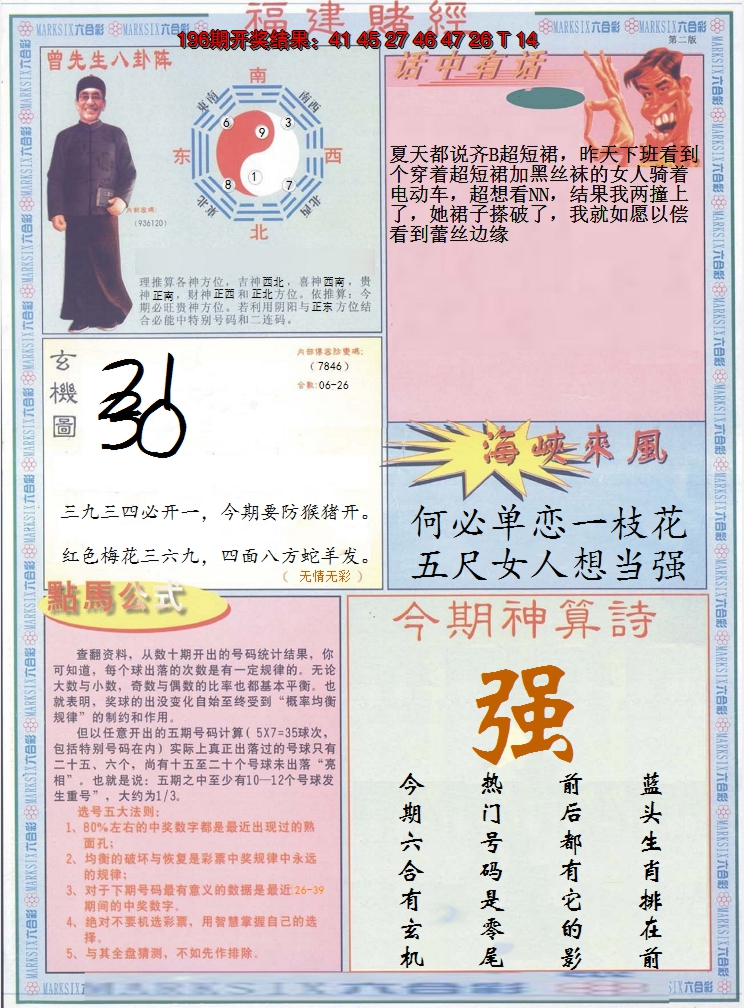 福建賭經
196期开奖结果: 41 45 27 46 47 26 T 14
第二版
曾先生八卦阵
南
东南
南西
6
9
3
东
西
8
1
7
东北
北西
北
内部密碼:
(936120)
理推算各神方位，吉神西北，喜神西南，贵
神正南，财神正西和正北方位。依推算：今
期必旺贵神方位。若利用阴阳与正东方位结
合必能中特别号码和二连码。
话中有话
夏天都说齐B超短裙，昨天下班看到
个穿着超短裙加黑丝袜的女人骑着
电动车，超想看NN，结果我两撞上
了，她裙子搽破了，我就如愿以偿
看到蕾丝边缘
玄機圖
内部傳密防變碼:
(7846)
合数:06-26
三九三四必开一，今期要防猴猪开。
红色梅花三六九，四面八方蛇羊发。
(无情无彩)
海峽來風
何必单恋一枝花
五尺女人想当强
點馬公式
查翻资料，从数十期开出的号码统计结果，你
可知道，每个球出落的次数是有一定规律的。无论
大数与小数，奇数与偶数的比率也都基本平衡。也
就表明，奖球的出没变化自始至终受到“概率均衡
规律”的制约和作用。
但以任意开出的五期号码计算( 5X7=35球次，
包括特别号码在内）实际上真正出落过的号球只有
二十五、六个，尚有十五至二十个号球未出落“亮
相”。也就是说：五期之中至少有10—12个号球发
生重号”，大约为1/3。
选号五大法则:
1、80%左右的中奖数字都是最近出现过的熟
面孔;
2、均衡的破坏与恢复是彩票中奖规律中永远
的规律;
3、对于下期号码最有意义的数据是最近26-39
期间的中奖数字。
4、绝对不要机选彩票，用智慧掌握自己的选
择。
5、与其全盘猜测，不如先作排除。
今期神算詩
强
蓝头生肖排在前
前后都有它的影
热门号码是零尾
今期六合有玄机
MARKSIX六合彩